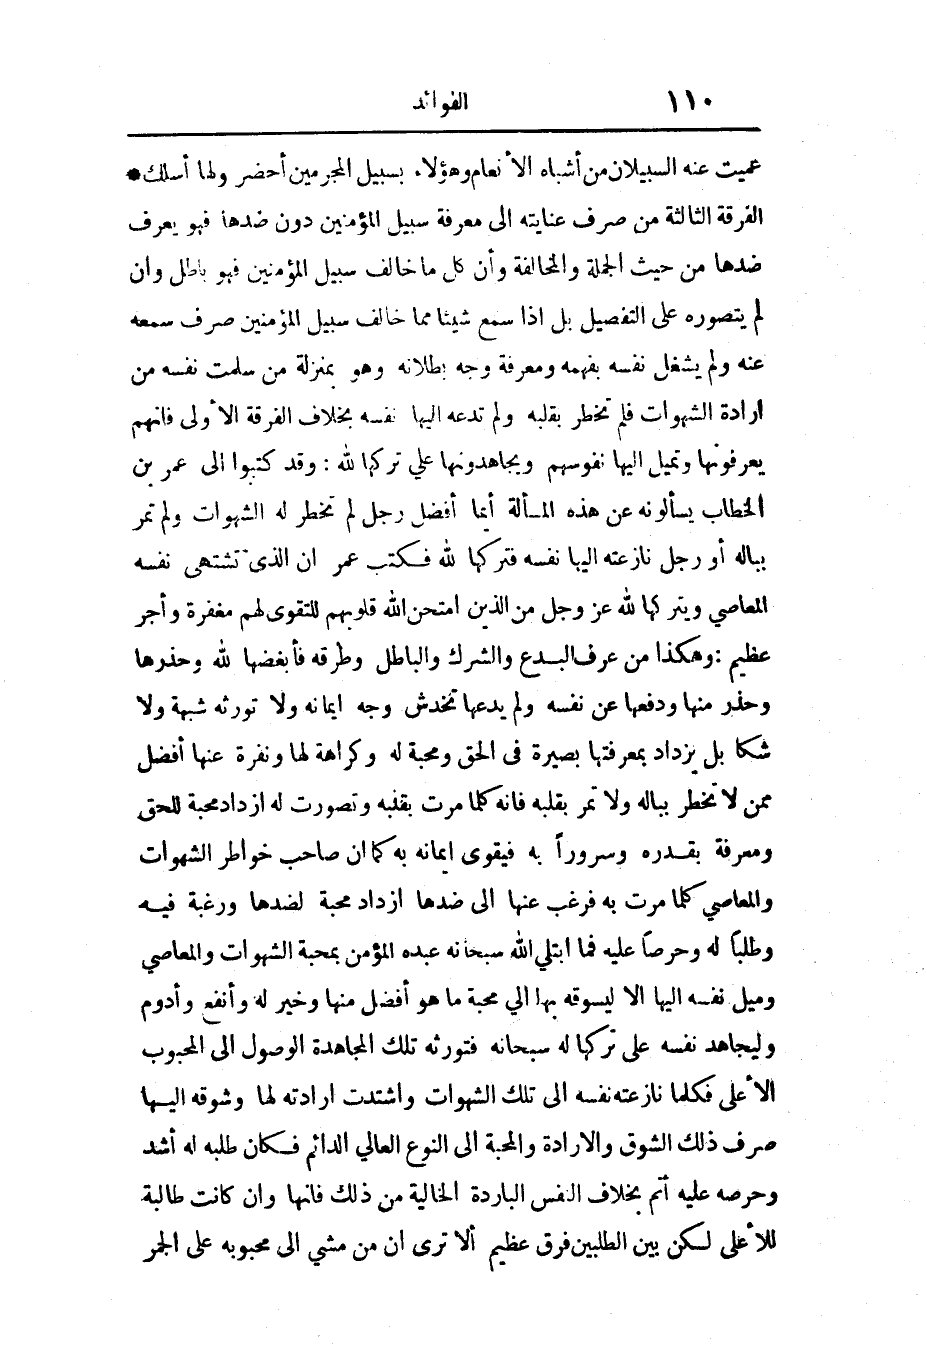 ١١٠ الفوائد
عميت عنه السبيلان من أشباه الأنعام وهؤلاء بسبيل المجرمين أحضر ولها أسلك •
الفرقة الثالثة من صرف عنايته الى معرفة سبيل المؤمنين دون ضدها فهو يعرف
ضدها من حيث الجملة والمخالفة وأن كل ما خالف سبيل المؤمنين فهو باطل وان
لم يتصوره على التفصيل بل اذا سمع شيئا مما خالف سبيل المؤمنين صرف سمعه
عنه ولم يشغل نفسه بفهمه ومعرفة وجه بطلانه وهو بمنزلة من سلمت نفسه من
ارادة الشهوات فلم تخطر بقلبه ولم تدعه اليها نفسه بخلاف الفرقة الأولى فانهم
يعرفونها وتميل اليها نفوسهم ويجاهدونها علي تركها لله : وقد كتبوا الى عمر بن
الخطاب يسألونه عن هذه المسألة أيما أفضل رجل لم تخطر له الشهوات ولم تمر
بباله أو رجل نازعته اليها نفسه فتركها لله فكتب عمر ان الذى تشتهى نفسه
المعاصي ويتركها لله عز وجل من الذين امتحن الله قلوبهم للتقوى لهم مغفرة وأجر
عظيم : وهكذا من عرف البدع والشرك والباطل وطرقه فأبغضها لله وحذرها
وحذر منها ودفعها عن نفسه ولم يدعها تخدش وجه ايمانه ولا تورثه شبهة ولا
شكا بل يزداد بمعرفتها بصيرة فى الحق ومحبة له وكراهة لها ونفرة عنها أفضل
ممن لا تخطر بباله ولا تمر بقلبه فانه كلما مرت بقلبه وتصورت له ازداد محبة للحق
ومعرفة بقدره وسروراً به فيقوى ايمانه به كما ان صاحب خواطر الشهوات
والمعاصي كلما مرت به فرغب عنها الى ضدها ازداد محبة لضدها ورغبة فيه
وطلباً له وحرصاً عليه فما ابتلي الله سبحانه عبده المؤمن بمحبة الشهوات والمعاصي
وميل نفسه اليها الا ليسوقه بها الي محبة ما هو أفضل منها وخير له وأنفع وأدوم
وليجاهد نفسه على تركها له سبحانه فتورثه تلك المجاهدة الوصول الى المحبوب
الأعلى فكلما نازعته نفسه الى تلك الشهوات واشتدت ارادته لها وشوقه اليها
صرف ذلك الشوق والارادة والمحبة الى النوع العالي الدائم فكان طلبه له أشد
وحرصه عليه أتم بخلاف النفس الباردة الخالية من ذلك فانها وان كانت طالبة
للأعلى لكن بين الطلبين فرق عظيم ألا ترى ان من مشي الى محبوبه على الجمر